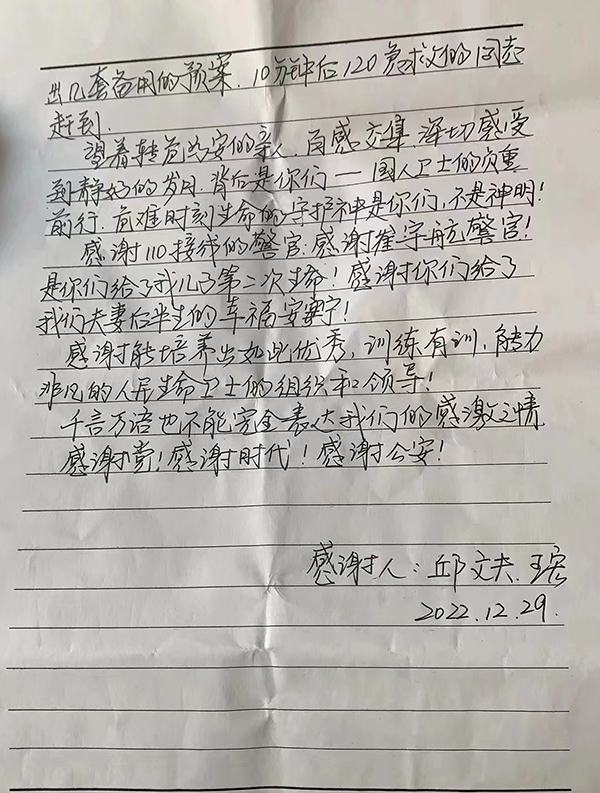 出几套备用的预案.10分钟后120急救的同志
赶到.
望着转危为安的亲人.百感交集.深切感受
到静好的岁月.背后是你们一国人卫士的负重
前行.危难时刻生命的守护神是你们,不是神明!
感谢110接线的警官.感谢崔宇航警官!
是你们给了我儿子第二次生命!感谢你们给了
我们夫妻后半生的幸福安宁!
感谢能培养出如此优秀,训练有训,能力
非凡的人民生命卫士的组织和领导!
千言万语也不能完全表达我们的感激之情
感谢党!感谢时代!感谢公安!
感谢人:邱文夫.王宏
2022.12.29.